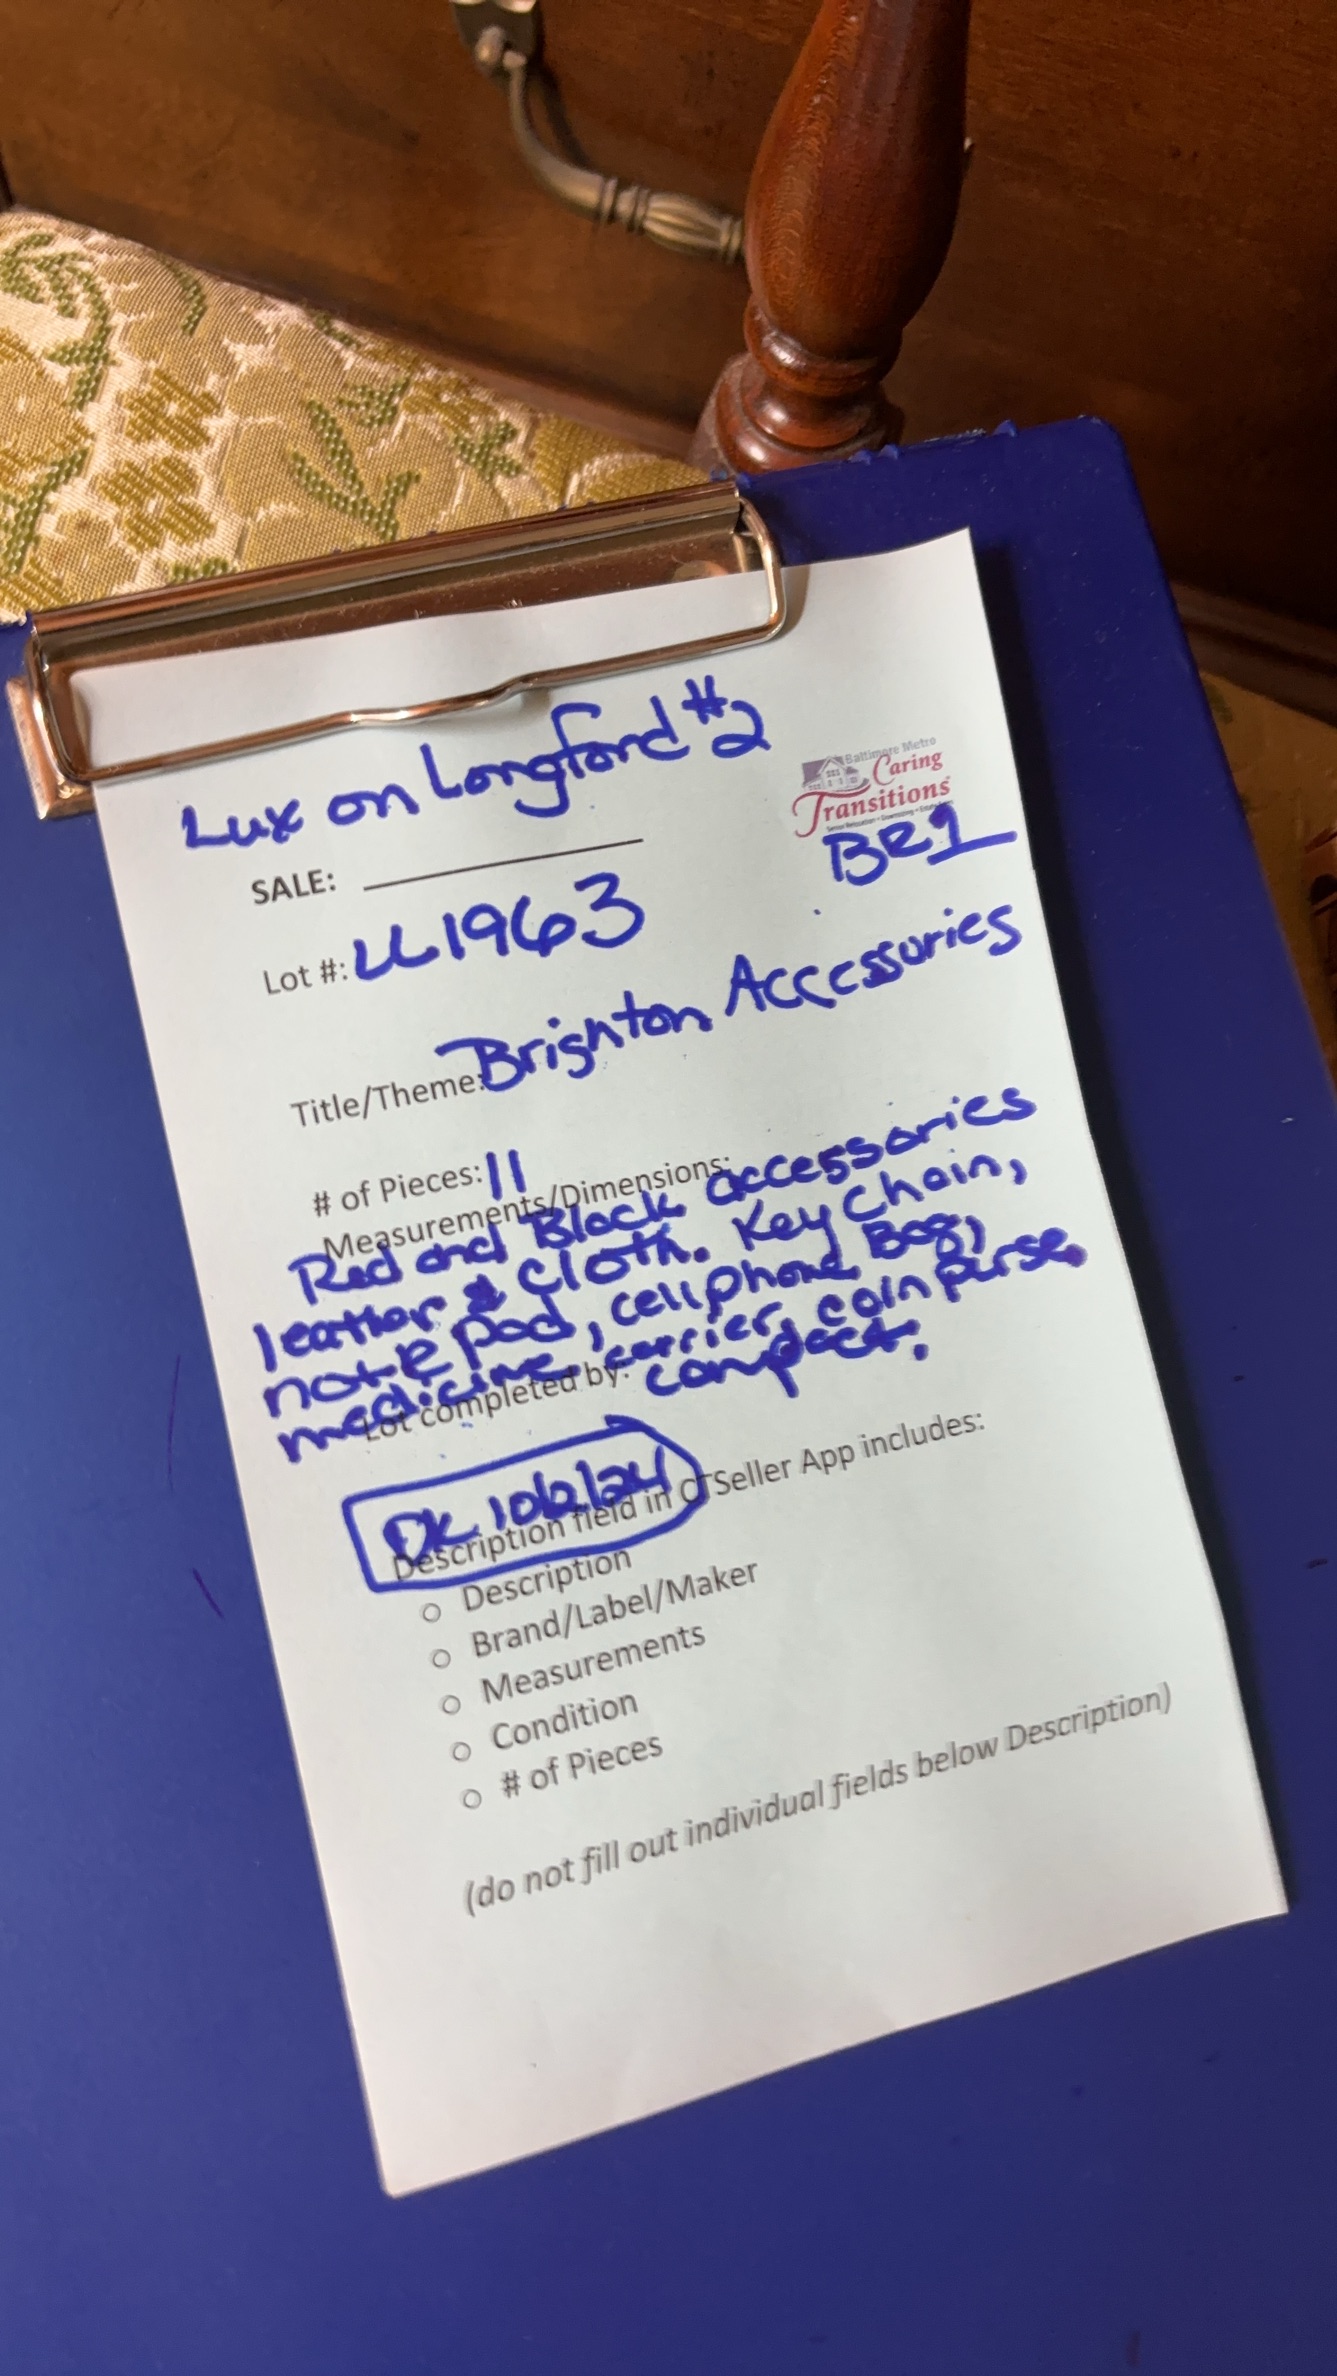 Lux on Longford #2
Baltimore Metro
Caring
Transitions
SALE:
BR1
Lot #: LL1963
Title/Theme: Brighton Accessories
# of Pieces: 11
Measurements/Dimensions:
Red and Black accessories
leather & cloth. Key Chain,
note pad, cellphone Bag,
medicine carrier, coin purse
compact.
Lot completed by:
DK
Description field in CTSeller App includes:
○ Description
○ Brand/Label/Maker
○ Measurements
○ Condition
○ # of Pieces
(do not fill out individual fields below Description)